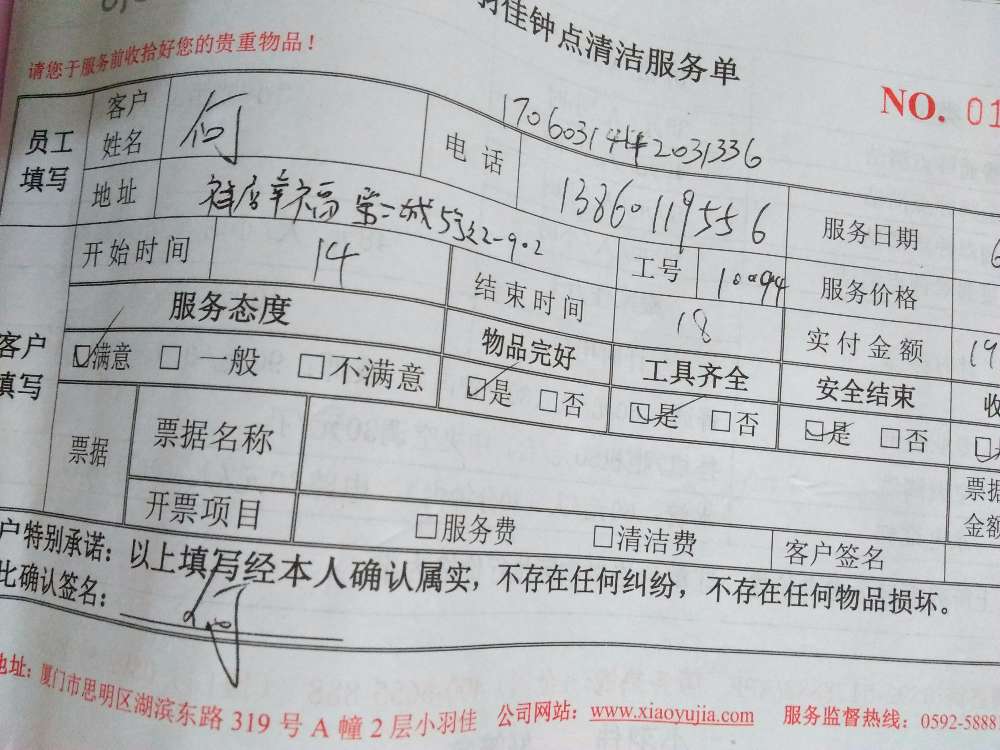 羽佳钟点清洁服务单
请您于服务前收拾好您的贵重物品！
NO. 01
员工填写 客户姓名 何 电话 1706031442031336
13860119556 服务日期 6
地址 幸福 第二城 2-902 工号 10094 服务价格
开始时间 14 结束时间 18 实付金额 19
客户填写 服务态度 物品完好 工具齐全 安全结束 收
☑满意 □一般 □不满意 ☑是 □否 ☑是 □否 ☑是 □否
票据 票据名称 票据金额
开票项目 □服务费 □清洁费 客户签名
户特别承诺：以上填写经本人确认属实，不存在任何纠纷，不存在任何物品损坏。
比确认签名： 何
地址：厦门市思明区湖滨东路 319 号 A 幢 2 层小羽佳 公司网站：www.xiaoyujia.com 服务监督热线：0592-5888